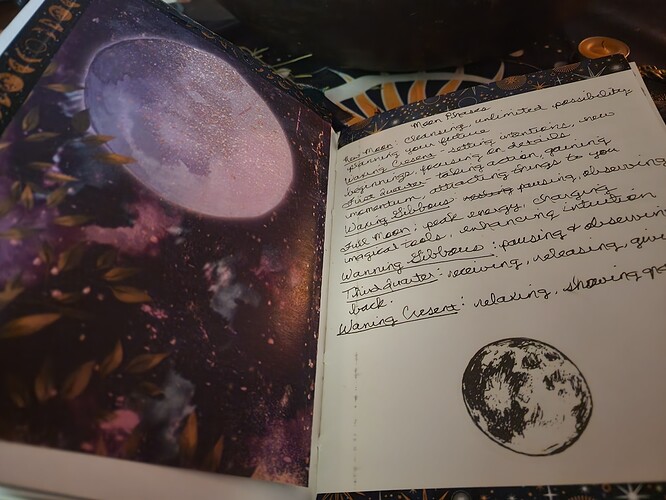 Moon Phases
New Moon: cleansing, unlimited possibility
planning your future
Waxing Cresent - setting intentions, new
beginnings, focusing on details
First Quarter: taking action, gaining
momentum, attracting things to you
Waxing Gibbous: pausing, observing
Full Moon: peak energy, charging
magical tools, enhancing intuition
Wanning Gibbous: pausing & observing
Third Quarter: receiving, releasing, give
back.
Waning Cresent: relaxing, showing